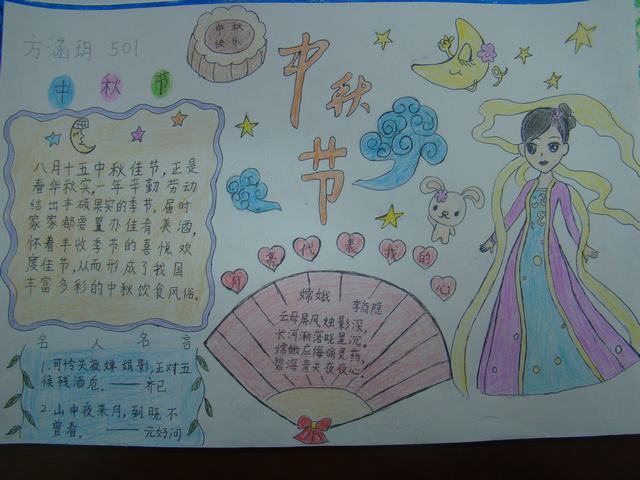 方涵玥 501
中秋
快乐
中秋节
中秋节
八月十五中秋佳节,正是
春华秋实,一年辛勤劳动
结出丰硕果实的季节。届时
家家都要置办佳肴美酒,
怀着丰收季节的喜悦欢
度佳节,从而形成了我国
丰富多彩的中秋饮食风俗。
月亮代表我的心
嫦娥 李商隐
云母屏风烛影深,
长河渐落晓星沉。
嫦娥应悔偷灵药,
碧海青天夜夜心。
名人名言
1.可怜关夜婵娟影,正对五
候残酒危。——齐已
2.山中夜来月,到晓不
曾看。——元好问